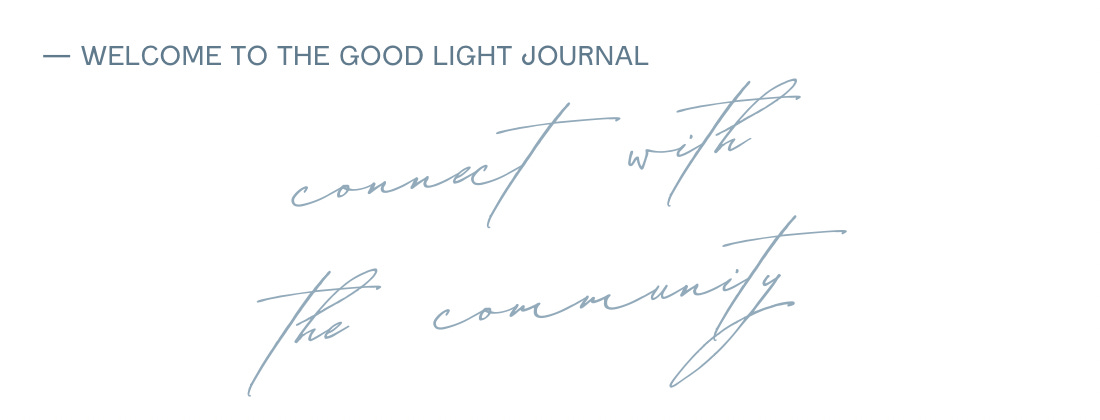 — WELCOME TO THE GOOD LIGHT JOURNAL
connect with
the community